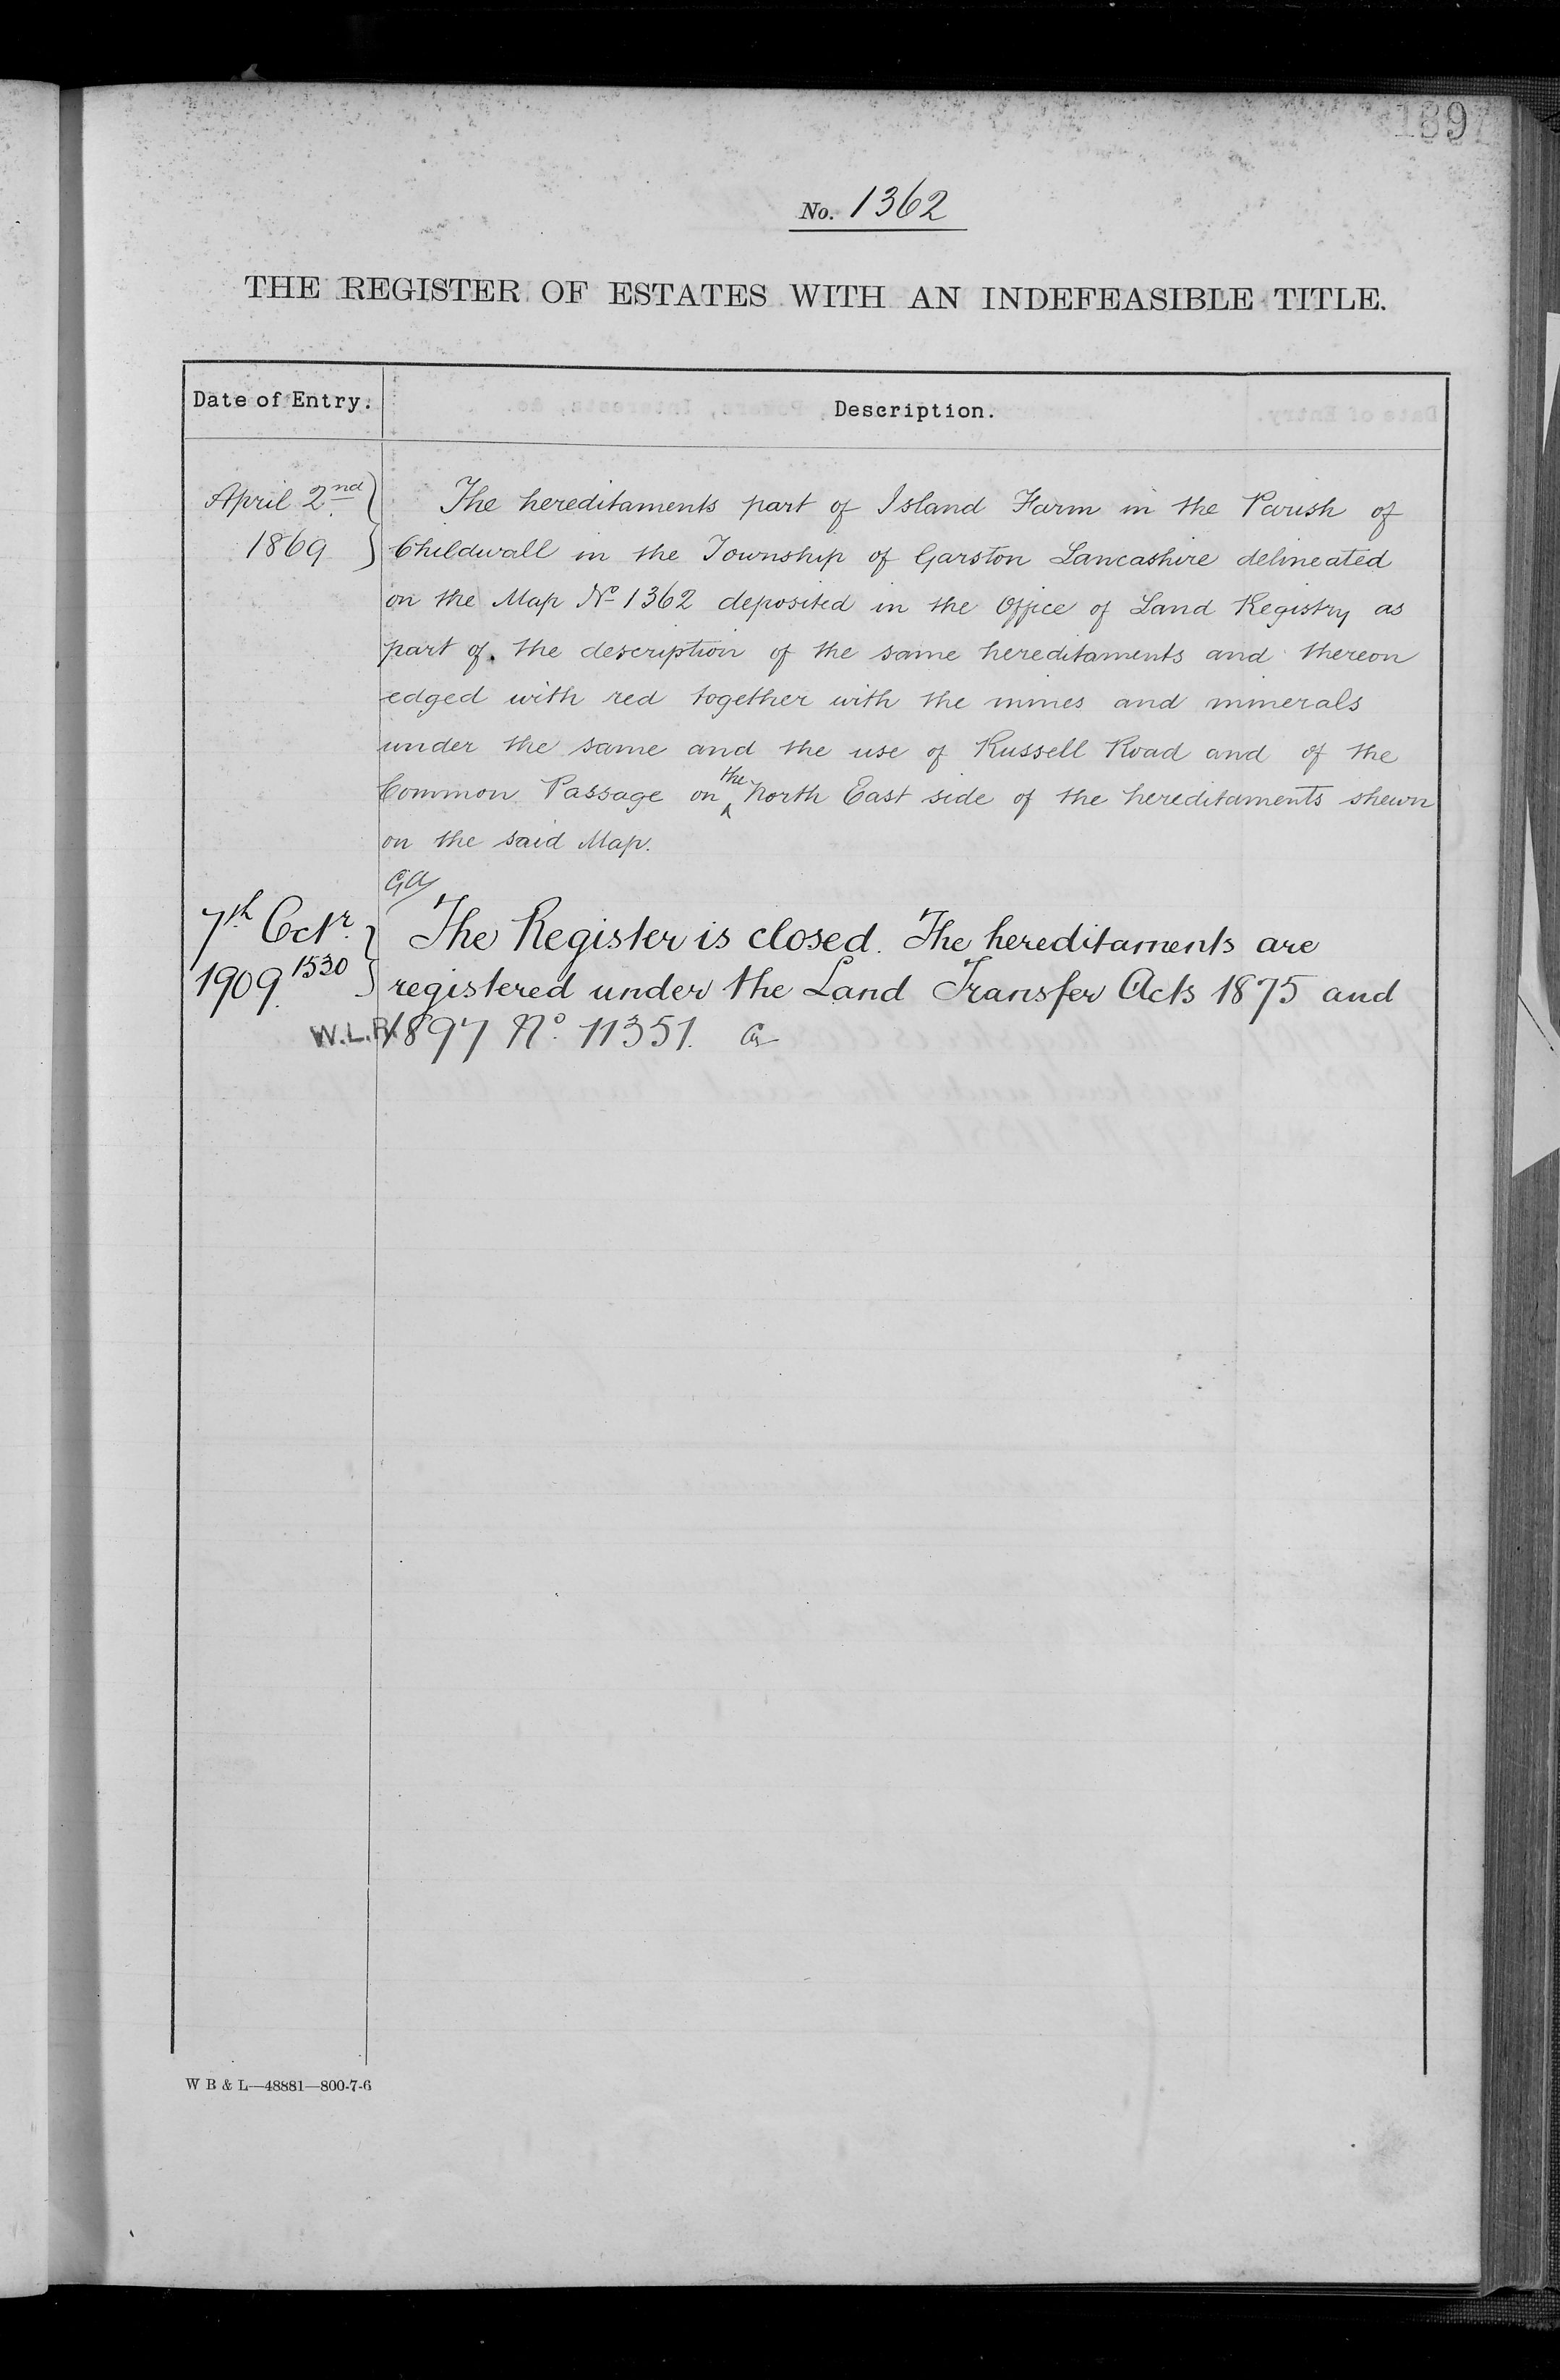 189
No. 1362
THE REGISTER OF ESTATES WITH AN INDEFEASIBLE TITLE.
Date of Entry.
Description.
April 2nd
1869
The hereditaments part of Island Farm in the Parish of
Childwall in the Township of Garston Lancashire delineated
on the Map No 1362 deposited in the Office of Land Registry as
part of the description of the same hereditaments and thereon
edged with red together with the mines and minerals
under the same and the use of Russell Road and of the
Common Passage on the North East side of the hereditaments shewn
on the said Map.
GA
7th Octr.
1909. 1530
W.L.R.
The Register is closed. The hereditaments are
registered under the Land Transfer Acts 1875 and
1897 No. 11351.
W B & L—48881—800-7-6